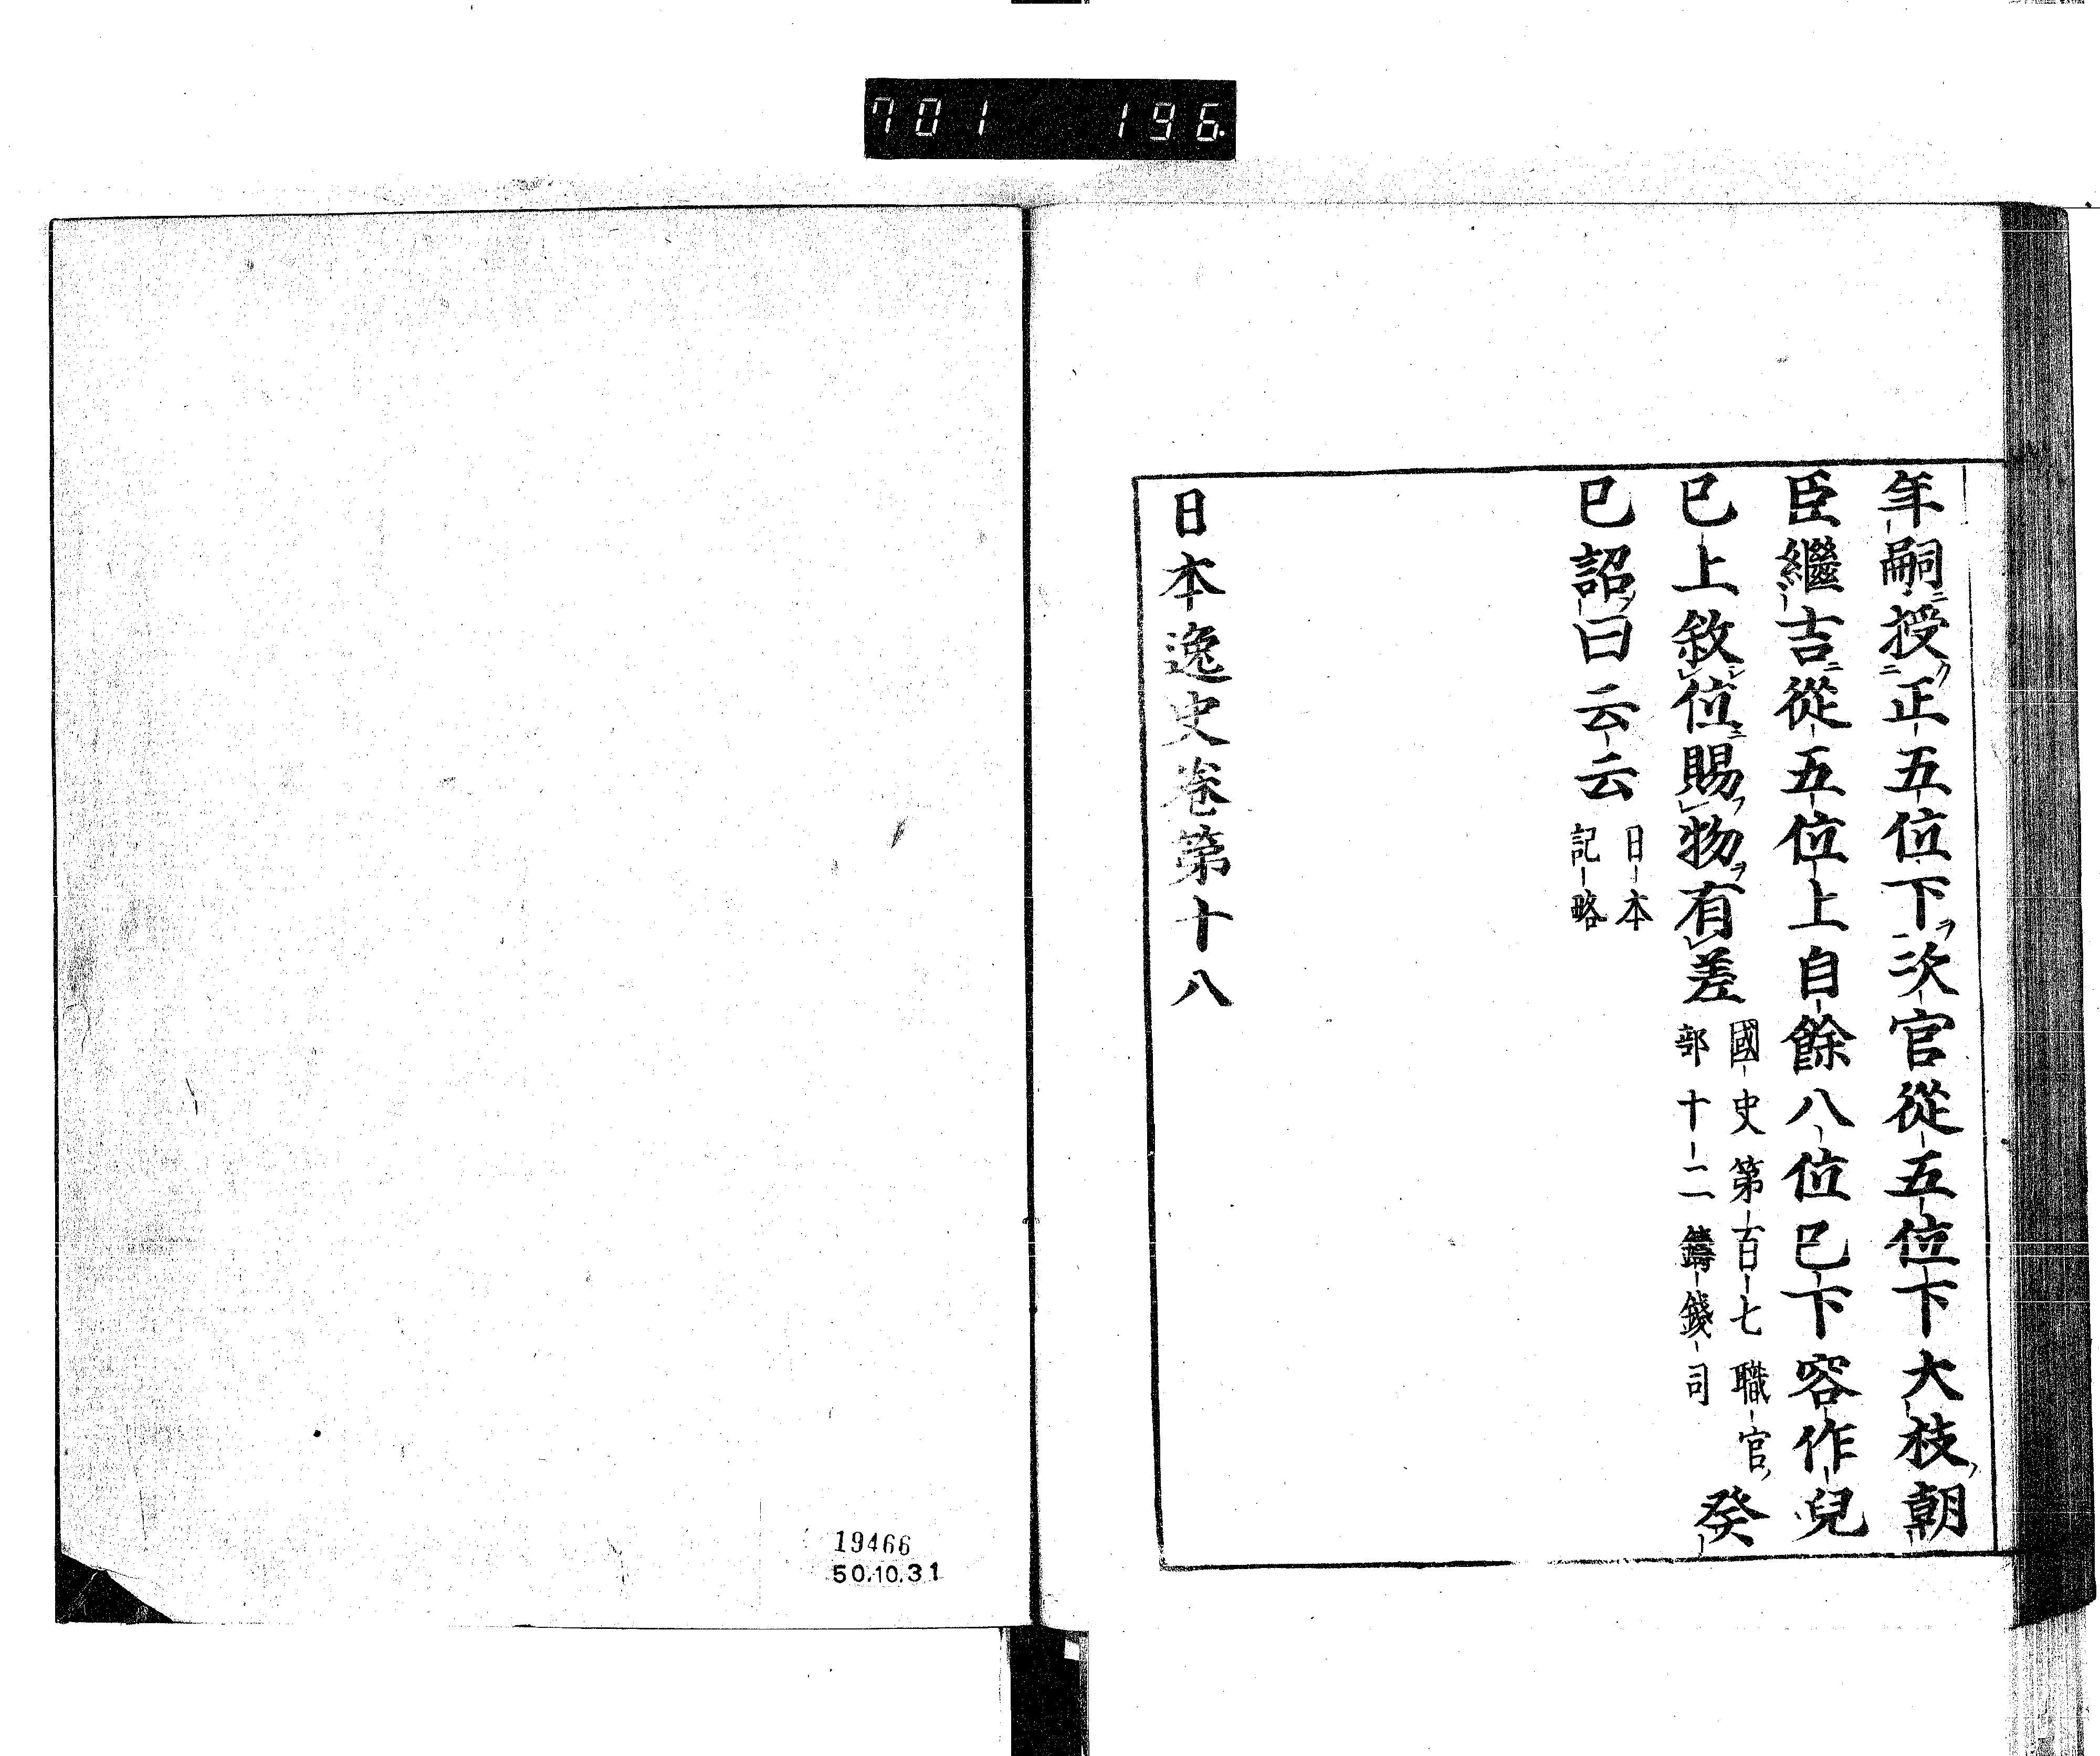 701 196.
年嗣授正五位下次官從五位下大枝朝
臣繼吉從五位上自餘八位已下容作兒
已上敘位賜物有差國史第百七職官
部十二鑄錢司癸
巳詔曰云云日本
記略
日本逸史卷第十八
19466
50.10.31